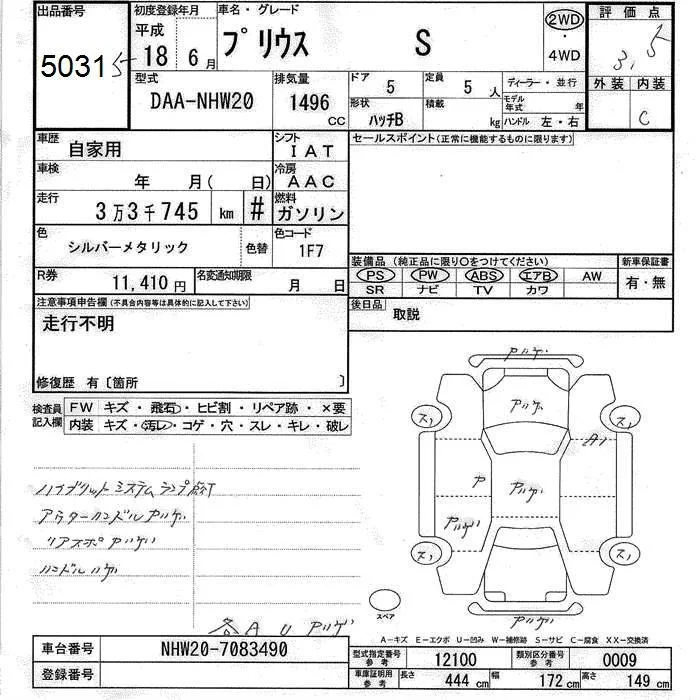 出品番号
50315
初度登録年月
平成
18 6月
車名・グレード
プリウス S
2WD
・
4WD
評価点
3.5
外装 内装
C
型式
DAA-NHW20
排気量
1496
CC
ドア
5
定員
5 人
形状
ハッチB
積載
kg
ディーラー・並行
モデル年式 年
ハンドル 左・右
車歴
自家用
シフト
IAT
車検
年 月( 日)
冷房
AAC
走行
3万3千745 km #
燃料
ガソリン
色
シルバーメタリック
色替
色コード
1F7
R券
11,410円
名変通知期限
月 日
セールスポイント(正常に機能するものに限ります)
装備品 (純正品に限り○をつけてください)
新車保証書
PS PW ABS エアB AW
SR ナビ TV カワ
有・無
後日品
取説
注意事項申告欄(不具合内容等は具体的に記入して下さい)
走行不明
修復歴 有〔箇所 〕
検査員
記入欄
FW キズ・飛石・ヒビ割・リペア跡・×要
内装 キズ・汚レ・コゲ・穴・スレ・キレ・破レ
ハイブリットシステムランプ点灯
アウターハンドルアハゲ
リアスポアハゲ
ハンドルハゲ
各AUアハゲ
アハゲ
アハゲ
ス1
ス1
A1
ア
アハゲ
アハゲ
ス1
ス1
アハゲ
スペア
A-キズ E-エクボ U-凹み W-補修跡 S-サビ C-腐食 XX-交換済
車台番号
NHW20-7083490
登録番号
型式指定番号
参考
12100
類別区分番号
参考
0009
車庫証明用
参考
長さ 444 cm
幅 172 cm
高さ 149 cm